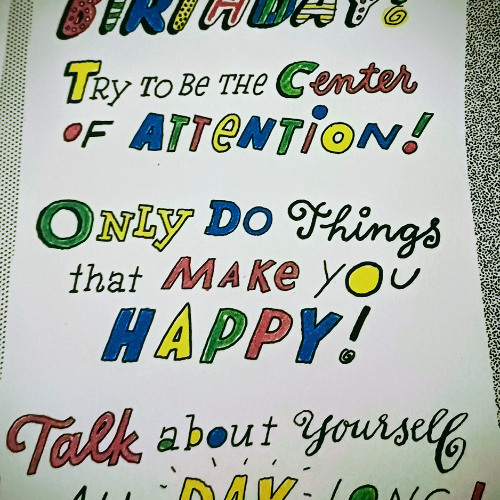 BIRTHDAY!
Try to Be the Center
of ATTeNTiON!
ONLY DO Things
that MAKe you
HAPPY!
Talk about Yourself
ALL DAY LONG!